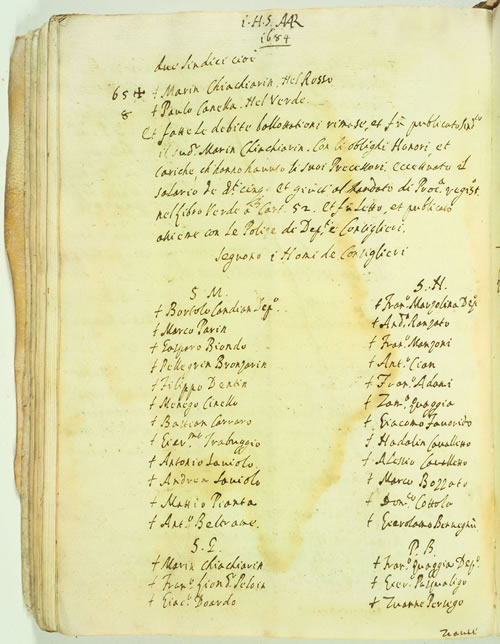 1684
due sindici cioè
65 + + Marin Chiachiarin. Nel Rosso
8 + Paulo Canella. Nel Verde.
Et fatte le debite ballottationi rimase, et fù publicato
il sud.º Marin Chiachiarin. Con li oblighi Honori et
cariche, ch'hanno havuto li suoi Precessori, eccettuato el
salario de et giusto al mandato di
nel libro Verde Cart. 52. Et fù letto, et publicato
con le Polize de Dep.ti e Consiglieri,
Seguono i Homi de Consiglieri
S. M.
+ Bortolo Candian Dep.º
+ Marco Parin
+ Gasparo Biondo
+ Pellegrin Bronzarin
+ Filippo Dentin
+ Menego Cinello
+ Bastian Carraro
+ Trabuggio
+ Antonio Saviolo
+ Andrea Saviolo
+ Mattio Pianta
+ Ant.º Beltrame.
S. L.
+ Marin Chiachiarin
+ Fran.º
+ Giac.º Doardo
S. H.
+ Fran.º Marzolina Dep.
+ And.ª Ranzato
+ Fran.º Manzoni
+ Ant.º Cian
+ Fran.º Adami
+ Zam.ª Guaggia
+ Giacomo Favorido
+ Nadalin Cavalletto
+ Alessio Cavalletto
+ Marco Bozzato
+ Dom.º Cottola
+ Gierolamo
P. B.
+ Fran.º Guaggia Dep.º
+ Pasqualigo
+ Zuanne